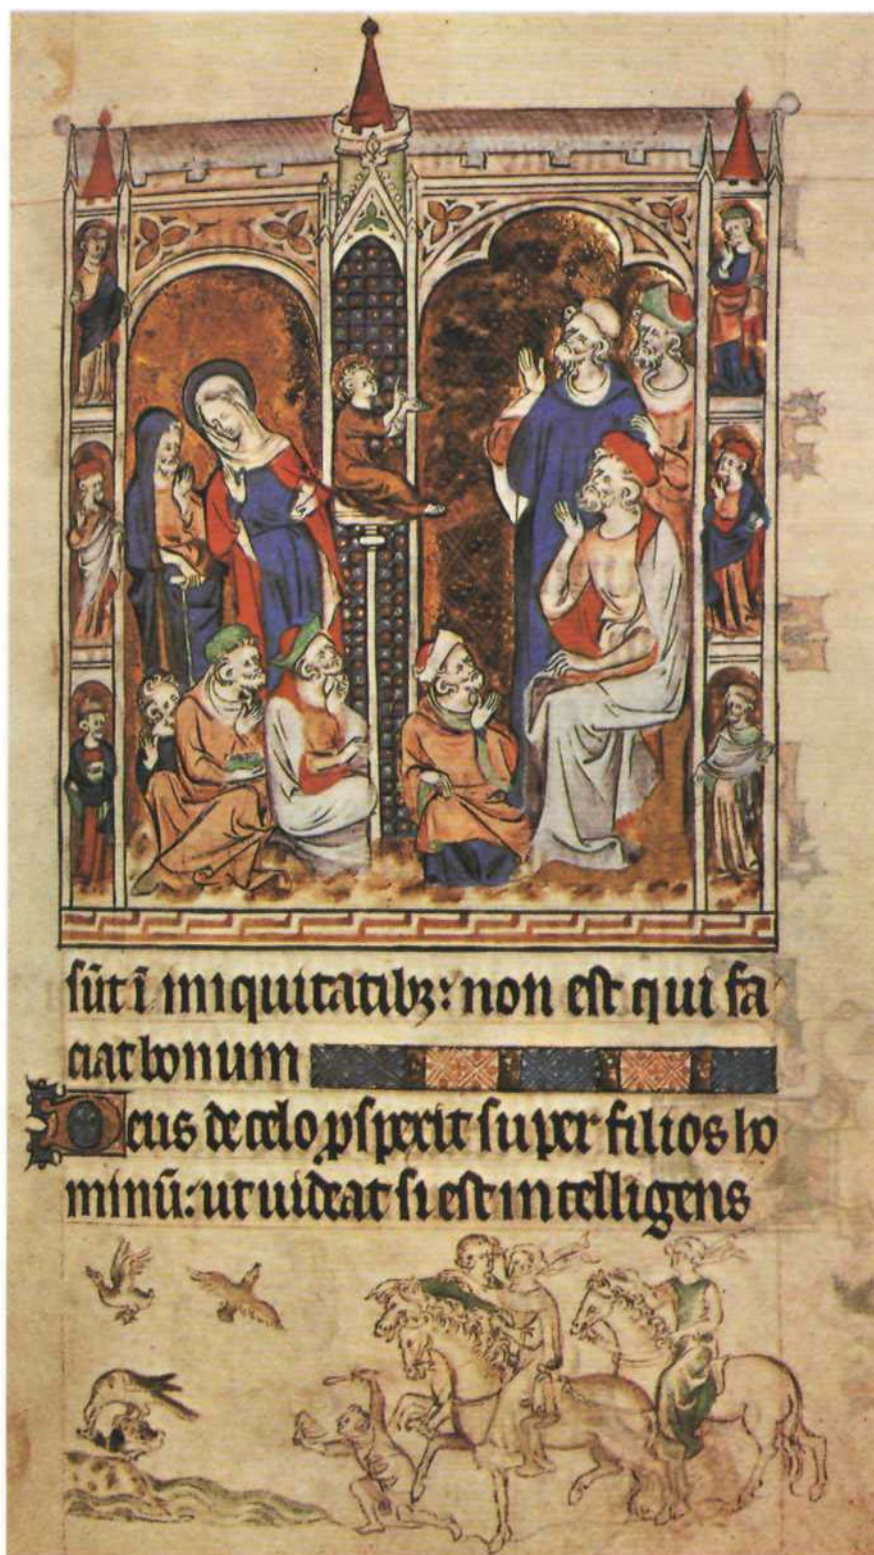 sūt ī iniquitatibꝫ: non est qui fa
ciat bonum
Deus de celo ꝓspexit super filios ho
minū: ut uideat si est intelligens